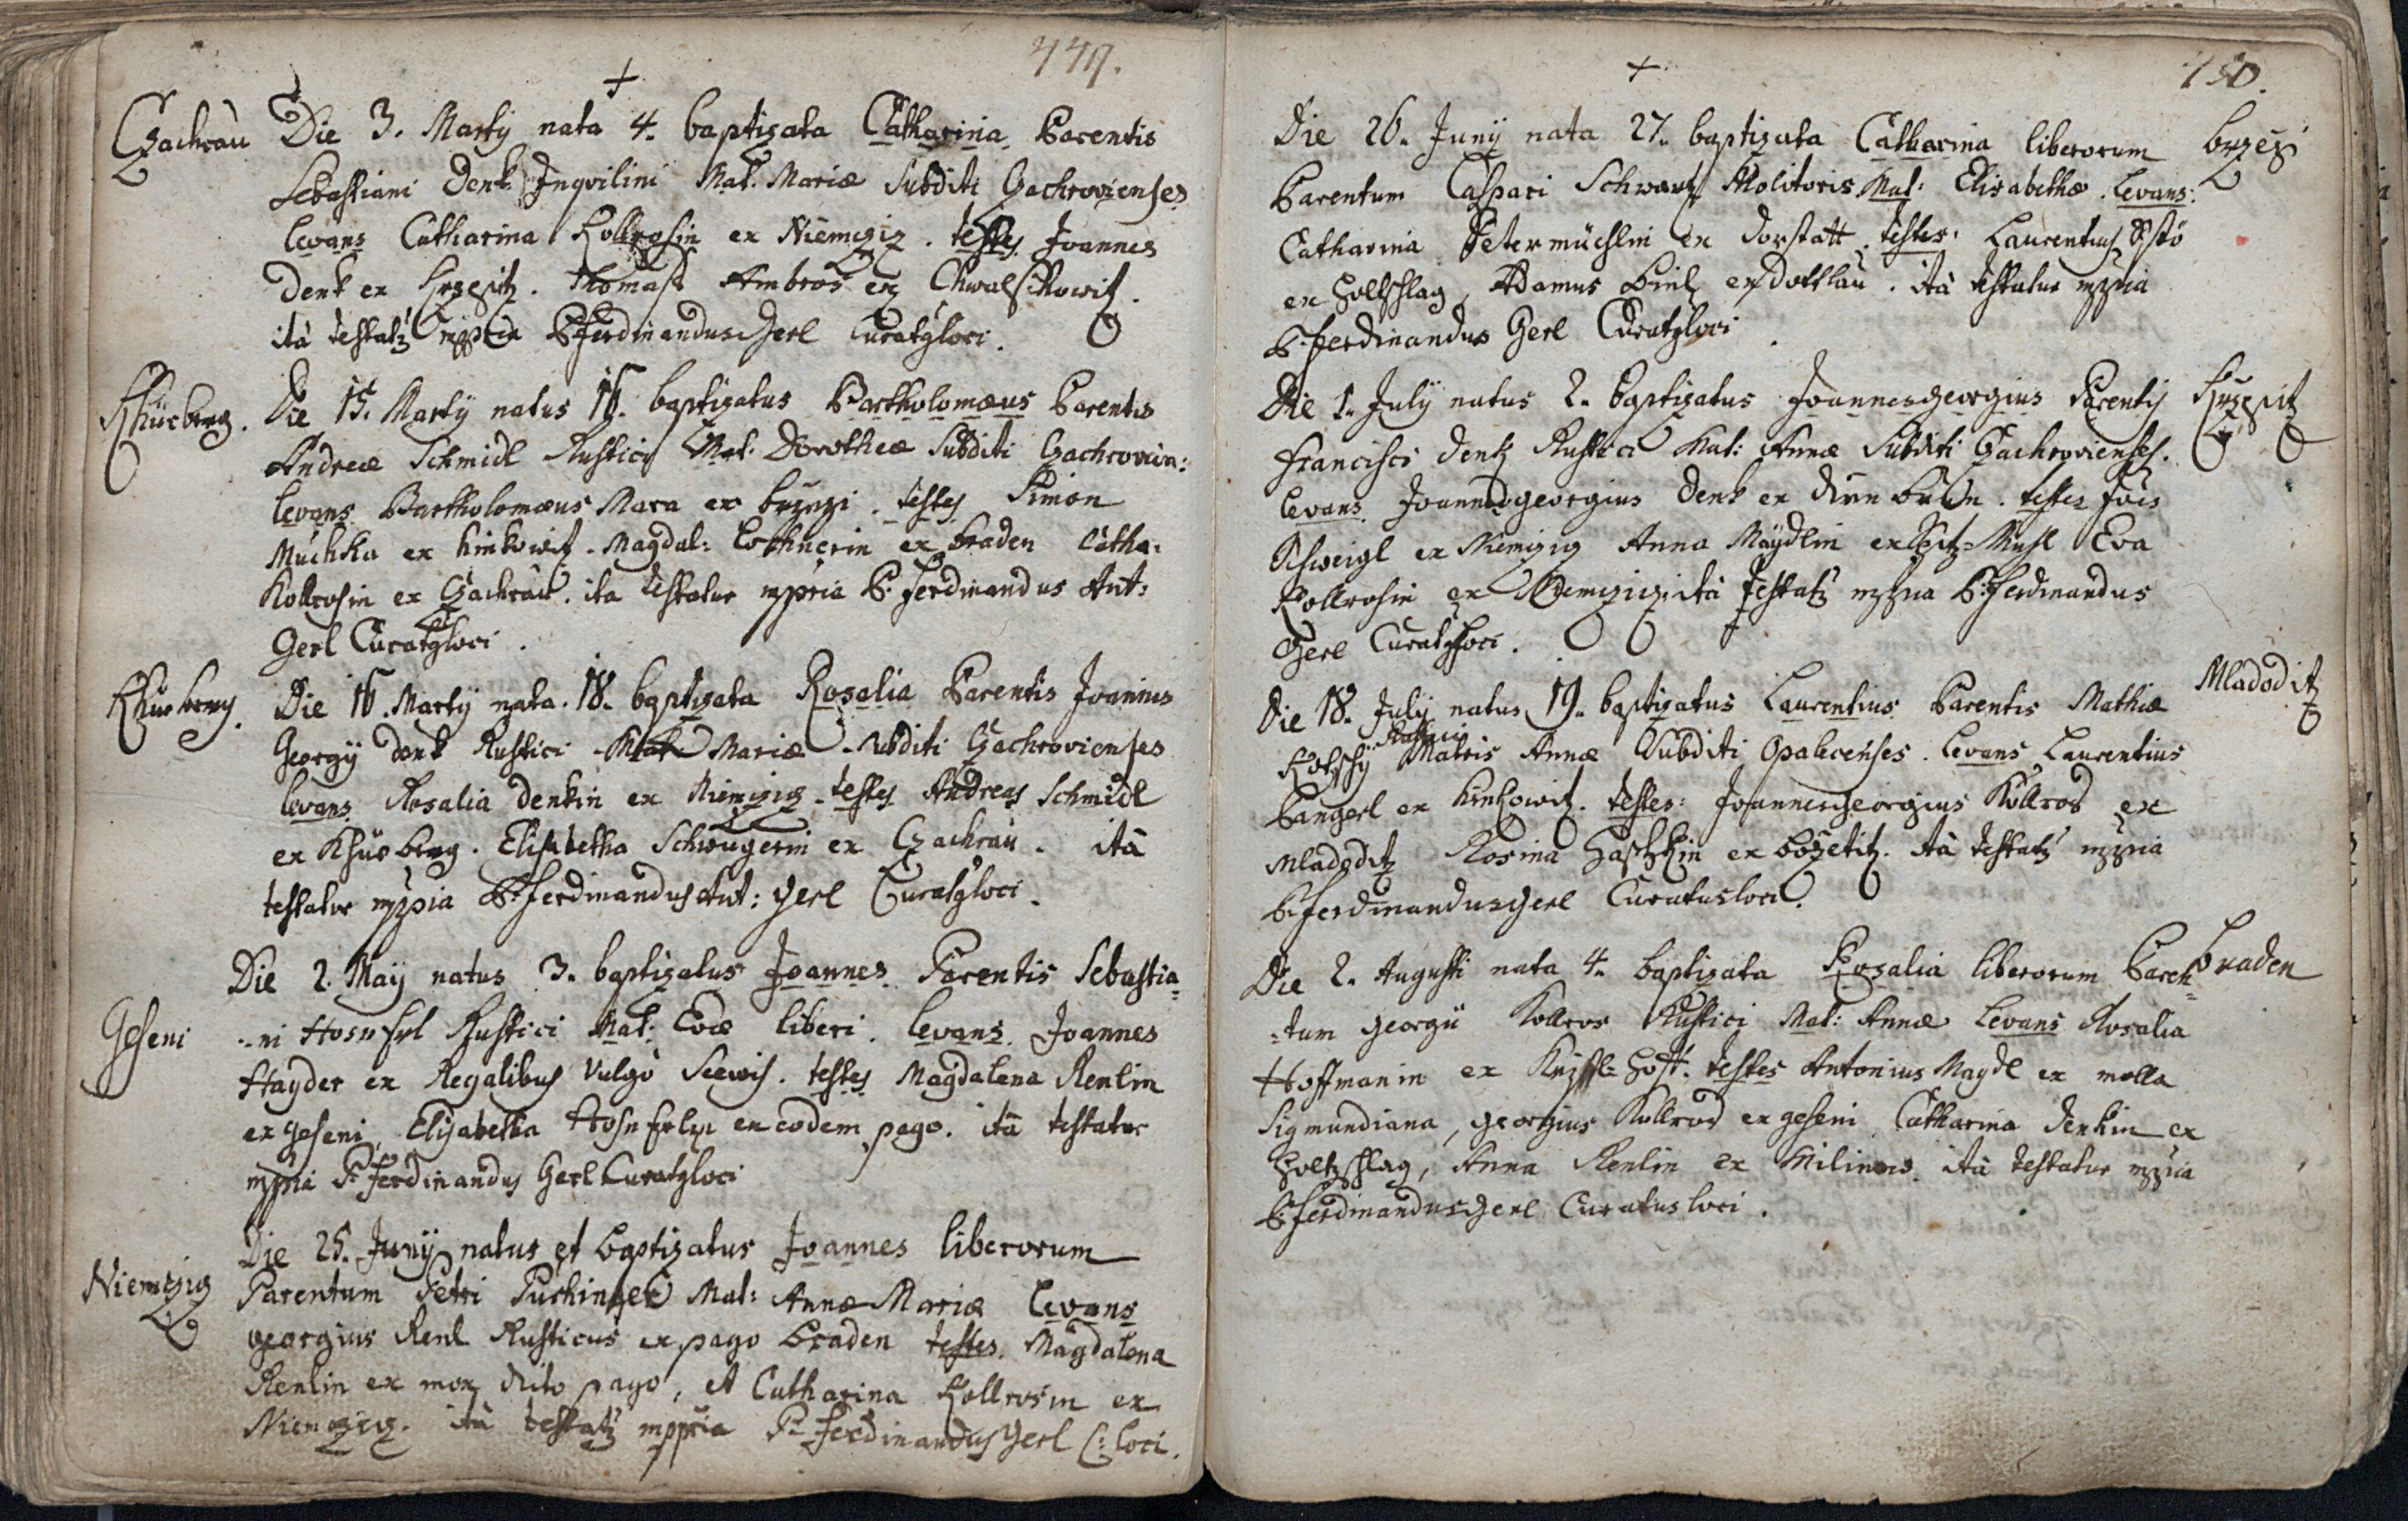 449.
+
Czachrau Die 3. Martÿ nata 4. baptizata Catharina Parentis
Sebastiani Denk Inquilini Mat. Mariæ Subditi Czachrovienses
levans Catharina Kollrosin ex Niemczicz. testes Joannes
Denk ex Krzepitz. Thomas Ambros ex Chwalschowitz.
ità testatz mppria P. Ferdinandus Gerl Curatg loci.
Khürberg. Die 15. Martÿ natus 16. baptizatus Bartholomæus Parentis
Andreæ Schmidl Rustici Mat. Dorotheæ Subditi Czachrovien:
levans Bartholomæus Mara ex brzezi. testes Simon
Muchka ex hinkowitz. Magdal: Lothnerin ex braden Catha:
Kollrosin ex Czachrau. ita testatur mpria P. Ferdinandus Ant:
Gerl Curatg loci.
Khürberg. Die 16. Martÿ nata. 18. baptizata Rosalia Parentis Joannis
Georgÿ denk Rustici Mat Mariæ Subditi Czachrovienses
levans Rosalia denkin ex Niemczicz. testes Andreas Schmidl
ex Khürberg. Elisabetha Schwugerin ex Czachrau. ità
testatur mppria P. Ferdinandus Ant: Gerl Curatg loci.
Die 2. Maÿ natus 3. baptizatus Joannes Parentis Sebastia=
Geseni =ni Hosnfrl Rustici Mat: Evæ liberi. levans. Joannes
Hayder ex Regalibus vulgò Seewis. testes Magdalena Renlin
ex geseni, Elisabetha ex eodem pago. ità testatur
mpria P. Ferdinandus Gerl Curatg loci
Die 25. Junÿ natus et baptizatus Joannes liberorum
Niemczicz Parentum Petri Purkinger Mat: Annæ Mariæ levans
georgius Renl Rusticus ex pago braden testes. Magdalena
Renlin ex mox dicto pago, et Catharina Kollrosin ex
Niemczicz. ità testatz mppria P. Ferdinandus Gerl C: loci.
450.
+
Die 26. Junÿ nata 27. baptizata Catharina liberorum brzezi
Parentum Caspari Schwartz Molitoris Mat: Elisabethæ. levans:
Catharina Petermüchlin ex Dorstatt. testes: Laurentius
ex holtzschlag, Adamus ex dottlau. ità testatur mppria
P. Ferdinandus Gerl Curatg loci.
Die 1. Julÿ natus 2. baptizatus Joannes georgius Parentis Krzepitz
Francisci Denk Rustici Mat: Annæ Subditi Czachrovienses.
levans Joannes georgius Denk ex. testes Jões
Schweigl ex Niemczicz Anna Maÿdlin ex Eva
Kollrosin ex Niemczicz. ità testatz mppria P. Ferdinandus
Gerl Curatg loci.
Die 18. Julÿ natus 19. baptizatus Laurentius Parentis Mathiæ Mladoditz
Rustici
Kotzschÿ Matris Annæ Subditi Opalecenses. levans Laurentius
Pangerl ex hinkowitz. testes: Joannes georgius Kollros ex
Mladoditz Rosina ex božetitz. ità testatz mppria
P. Ferdinandus Gerl Curatus loci.
Die 2. Augusti nata 4. baptizata Rosalia liberorum Paren= braden
=tum georgii Kollros Rustici Mat: Annæ levans Rosalia
Hoffmanin ex. testes Antonius Maydl ex molla
Sigmundiana, georgius Kollros ex geseni Catharina denkin ex
holtzschlag, Anna Renlin ex Milinous. ità testatur mppria
P. Ferdinandus Gerl Curatus loci.